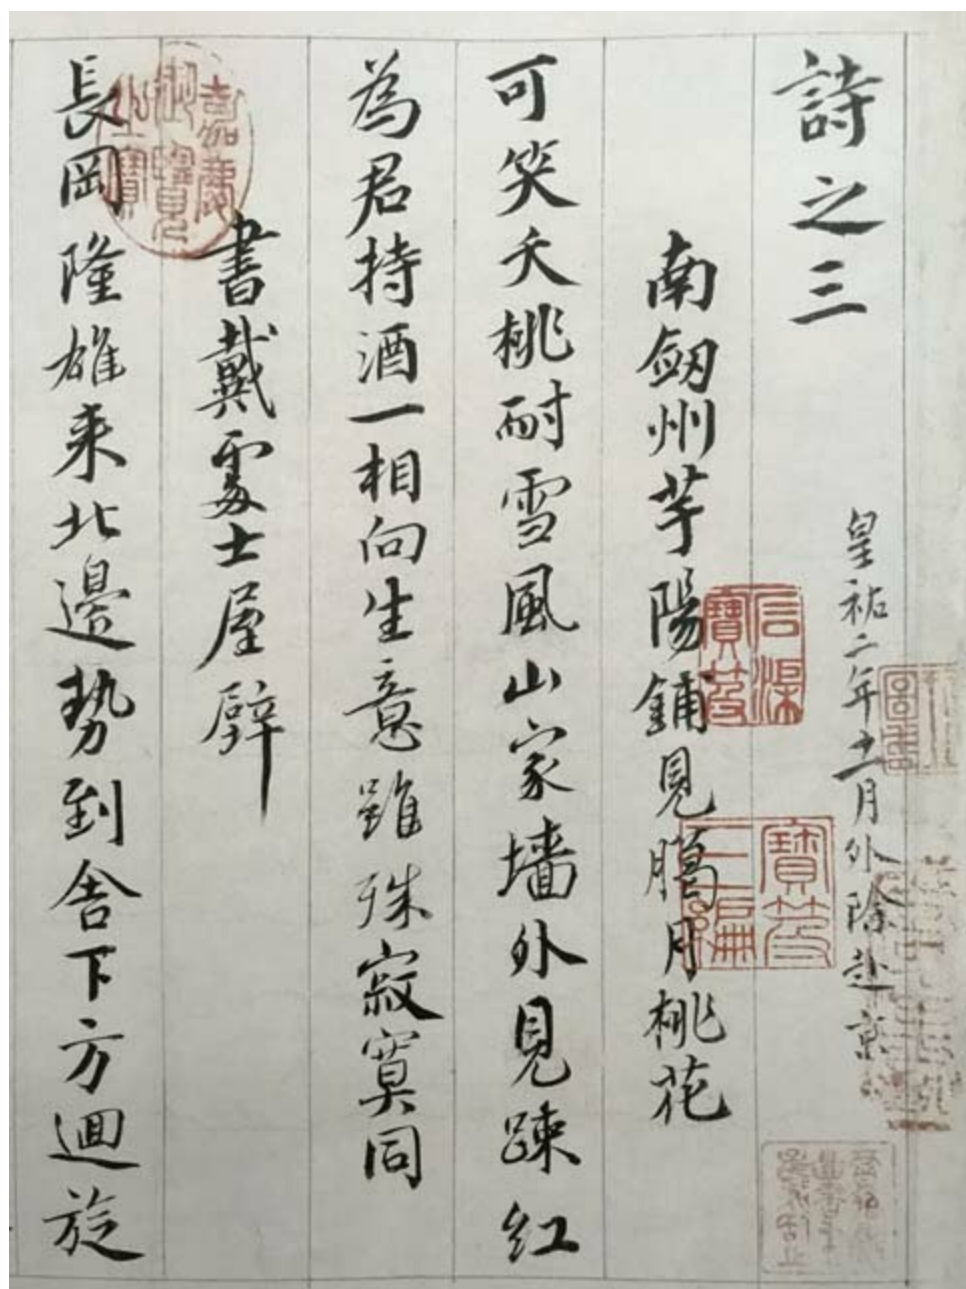 詩之三
皇祐二年十一月外除赴京
南劔州芋陽鋪見臈月桃花
可笑夭桃耐雪風山家墻外見踈红
為君持酒一相向生意雖殊寂寞同
書戴處士屋壁
長岡隆雄来北邊勢到舎下方迴旋
嘉慶御覽之寶
寶笈三編